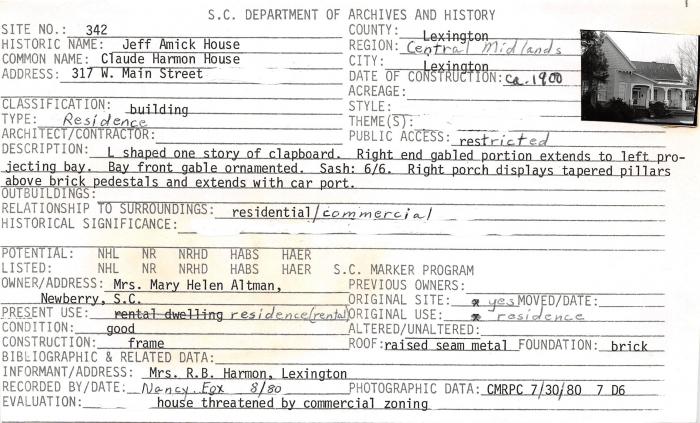 S.C. DEPARTMENT OF ARCHIVES AND HISTORY
SITE NO.: 342
HISTORIC NAME: Jeff Amick House
COMMON NAME: Claude Harmon House
ADDRESS: 317 W. Main Street
COUNTY: Lexington
REGION: Central Midlands
CITY: Lexington
DATE OF CONSTRUCTION: ca. 1900
ACREAGE:
CLASSIFICATION: building
TYPE: Residence
ARCHITECT/CONTRACTOR:
STYLE:
THEME(S):
PUBLIC ACCESS: restricted
DESCRIPTION: L shaped one story of clapboard. Right end gabled portion extends to left pro-
jecting bay. Bay front gable ornamented. Sash: 6/6. Right porch displays tapered pillars
above brick pedestals and extends with car port.
OUTBUILDINGS:
RELATIONSHIP TO SURROUNDINGS: residential/commercial
HISTORICAL SIGNIFICANCE:
POTENTIAL: NHL NR NRHD HABS HAER
LISTED: NHL NR NRHD HABS HAER S.C. MARKER PROGRAM
OWNER/ADDRESS: Mrs. Mary Helen Altman,
Newberry, S.C.
PREVIOUS OWNERS:
ORIGINAL SITE: * yes MOVED/DATE:
PRESENT USE: rental dwelling residence(rental)
ORIGINAL USE: * residence
CONDITION: good
ALTERED/UNALTERED:
CONSTRUCTION: frame
ROOF: raised seam metal FOUNDATION: brick
BIBLIOGRAPHIC & RELATED DATA:
INFORMANT/ADDRESS: Mrs. R.B. Harmon, Lexington
RECORDED BY/DATE: Nancy Fox 8/80
PHOTOGRAPHIC DATA: CMRPC 7/30/80 7 D6
EVALUATION: house threatened by commercial zoning